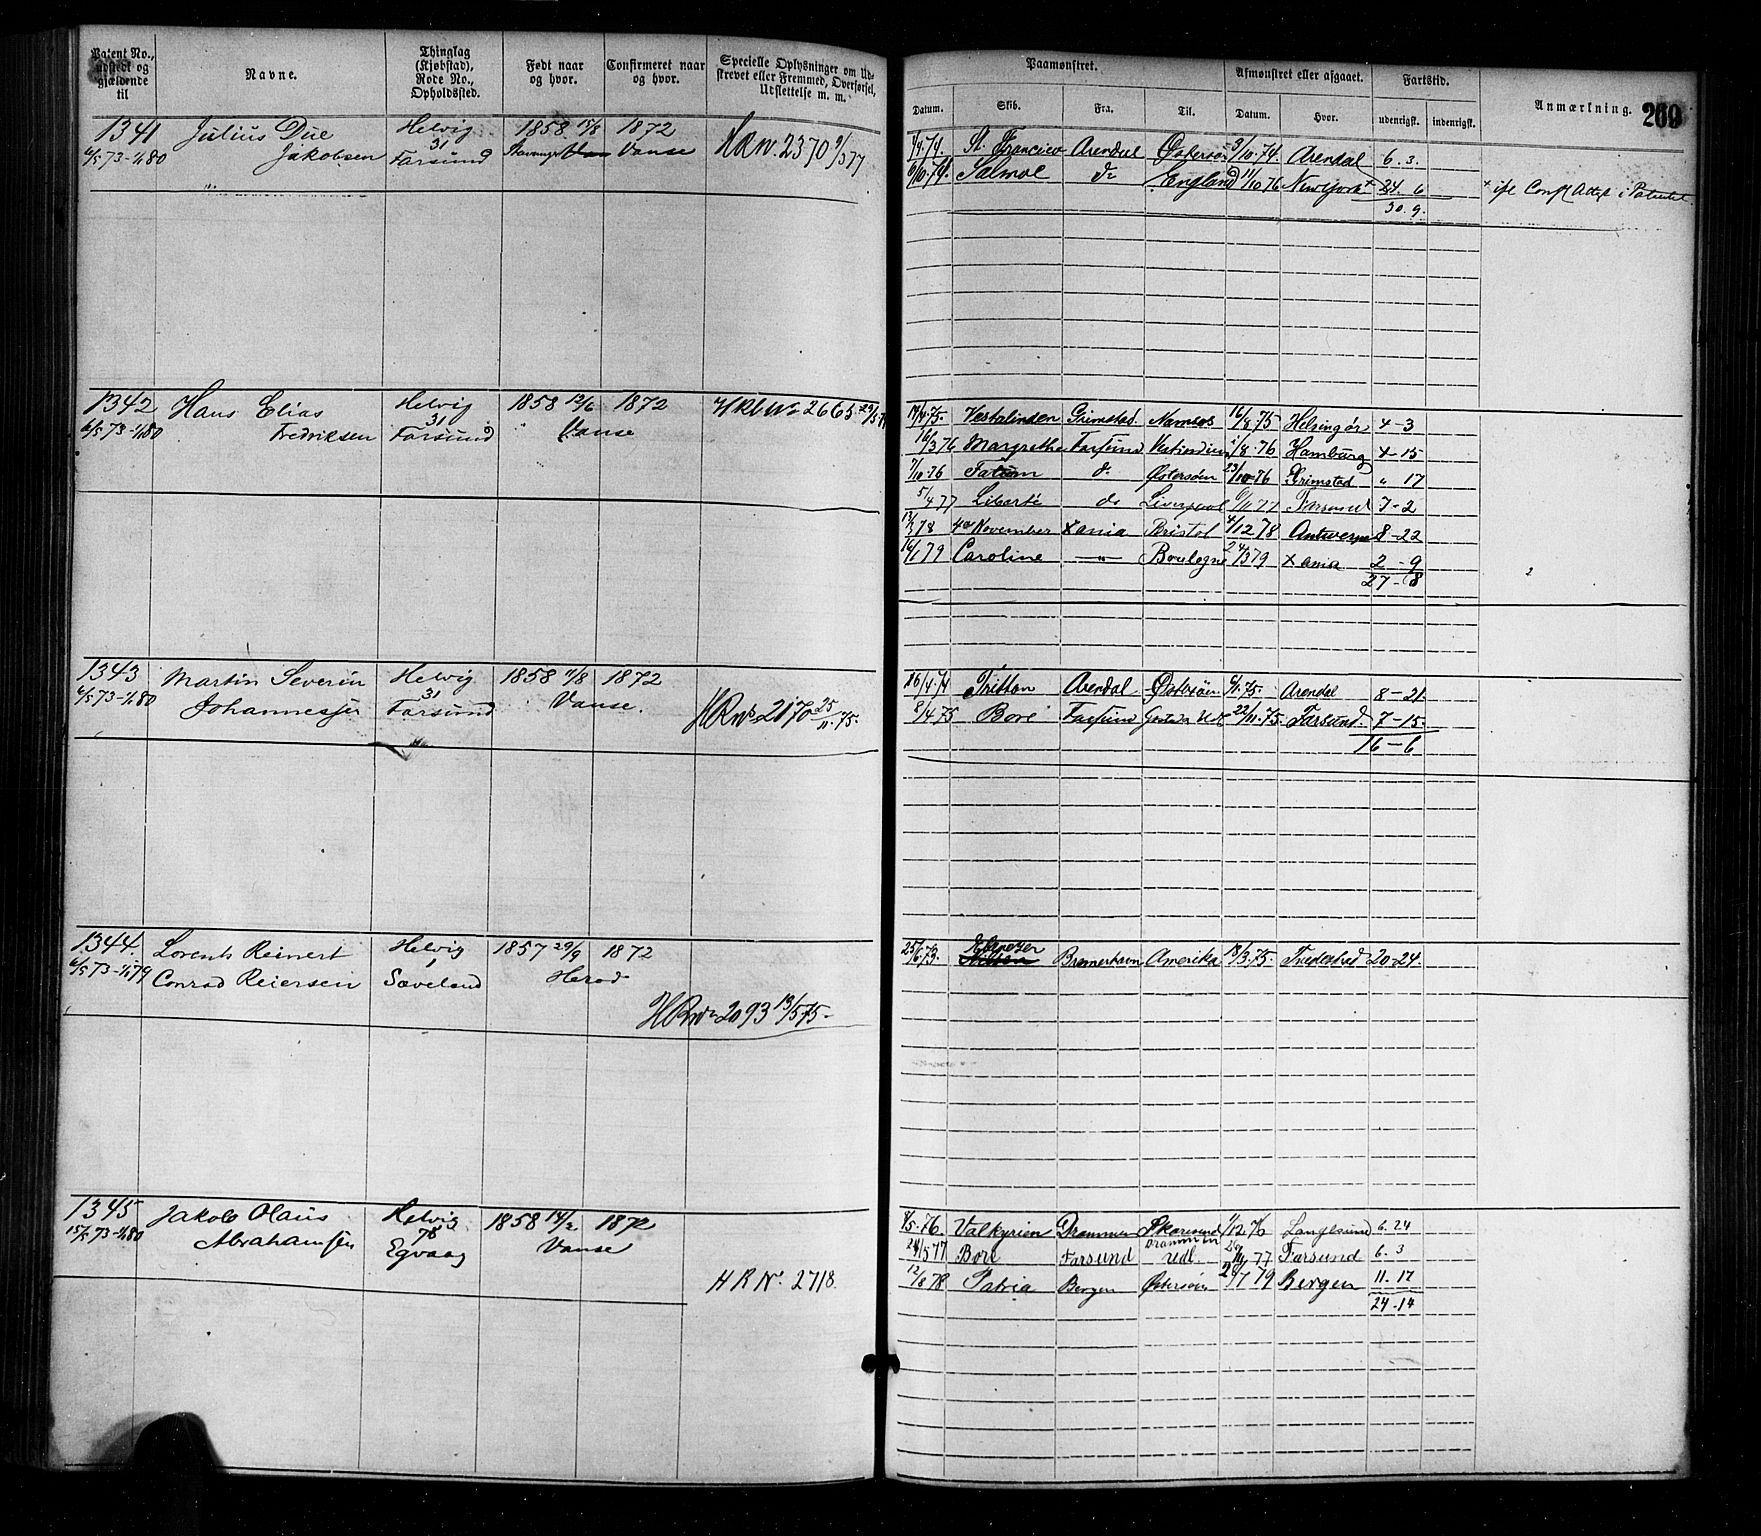 Patent No., udstedt og gjældende til
Navne.
Thinglag (Kjøbstad), Rode No., Opholdssted.
Født naar og hvor.
Confirmeret naar og hvor.
Specielle Oplysninger om Udskrevet eller Fremmed, Overførsel, Udslettelse m. m.
Paamønstret.
Afmønstret eller afgaaet.
Fartstid.
Anmærkning.
269
Datum.
Skib.
Fra.
Til.
Datum.
Hvor.
udenrigsk.
indenrigsk.
1341 Julius Due Helvig 1858 15/8 1872 HRN. 2370 9/5 77
6/5 73-1/1 80 Jakobsen 31 Farsund Stavanger Vanse
1/4 74. St. Francisco Arendal Østersøn 3/10. 74. Arendal 6. 3.
6/10. 74. Salmoe do England 11/10 76 New York + 24. 6 + ifl Cons Attst i Patentet
30. 9.
1342 Hans Elias Helvig 1858 12/6 1872 HRL No 2665
6/5 73-1/1 80 Fredriksen 31 Farsund Vanse
17/4. 75. Vestalinden Grimstad. Namsos 16/8 75 Helsingør 4-3
16/3 76 Margrethe Farsund Vestindien 1/8. 76 Hamburg 4-15
7/10 76 Fatum do Østersøen 23/10 76 Grimstad " 17
5/4 77 Liberté do Liverpool 6/11 77 Farsund 7-2
12/3 78 4de November Xania Bristol 4/12 78 Antwerpen 8-22
16/1 79 Caroline " Boulogne 24/3 79 Xania 2-9
27-8
1343 Martin Severin Helvig 1858 11/8 1872
6/5 73-1/1 80 Johannessen 31 Farsund Vanse. HRNo 2170 25/11 75.
16/4. 74 Tritton Arendal Østersøen 6/1. 75. Arendal 8-21.
8/4 75 Bore Farsund Udl 22/11. 75. Farsund. 7-15.
16-6
1344. Lorents Reinert Helvig 1857 29/9 1872
6/5 73-1/1 79 Conrad Reiersen 1 Sæveland Herad
HRNo 2093 13/5 75.
25/6 73. Ebenezer Bremerhavn Amerika 19/3. 75. Fredrikstad 20-24.
1345 Jakob Olaus Helvig 1858 14/2 1872
15/5 73-1/1 80 Abrahamsen 78 Egvaag Vanse
HRNo. 2718.
8/5. 76. Valkyrien Drammen 1/12 76 Langesund 6. 24
24/5 77 Bore Farsund Drammen Udl. 77 Farsund 6. 3
12/6 78 Patria Bergen Østersøen 28/7 79 Bergen 11. 17
24-14